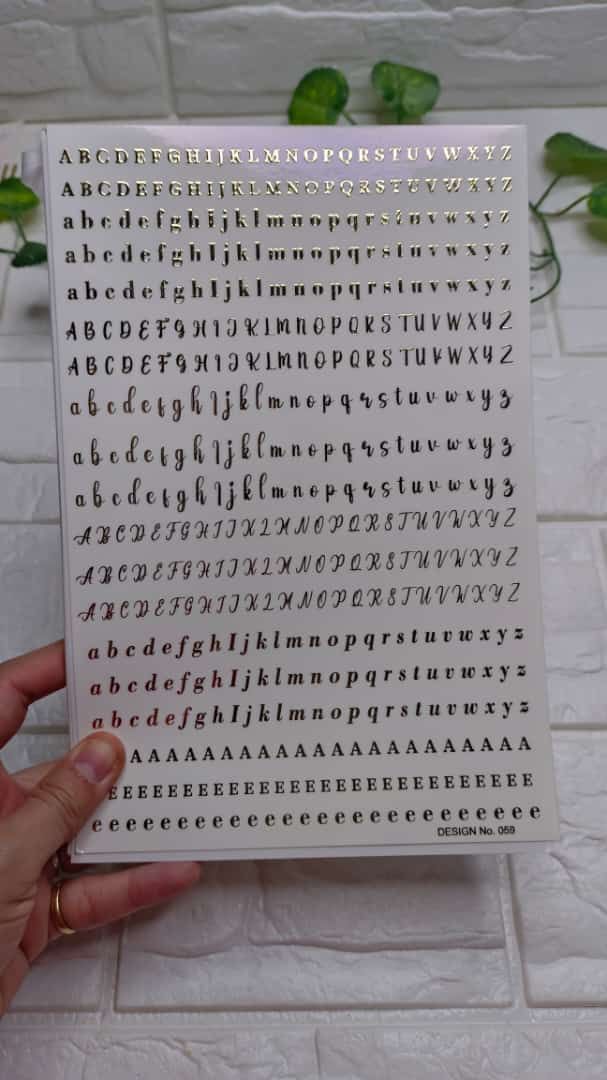 A B C D E F G H I J K L M N O P Q R S T U V W X Y Z
A B C D E F G H I J K L M N O P Q R S T U V W X Y Z
a b c d e f g h I j k l m n o p q r s t u v w x y z
a b c d e f g h I j k l m n o p q r s t u v w x y z
a b c d e f g h I j k l m n o p q r s t u v w x y z
A B C D E F G H I J K L M N O P Q R S T U V W X Y Z
A B C D E F G H I J K L M N O P Q R S T U V W X Y Z
a b c d e f g h I j k l m n o p q r s t u v w x y z
a b c d e f g h I j k l m n o p q r s t u v w x y z
a b c d e f g h I j k l m n o p q r s t u v w x y z
A B C D E F G H I J K L M N O P Q R S T U V W X Y Z
A B C D E F G H I J K L M N O P Q R S T U V W X Y Z
A B C D E F G H I J K L M N O P Q R S T U V W X Y Z
a b c d e f g h I j k l m n o p q r s t u v w x y z
a b c d e f g h I j k l m n o p q r s t u v w x y z
a b c d e f g h I j k l m n o p q r s t u v w x y z
A A A A A A A A A A A A A A A A A A A A A A A A
E E E E E E E E E E E E E E E E E E E E E E E E E E E E E
e e e e e e e e e e e e e e e e e e e e e e e e e e e
DESIGN No. 059